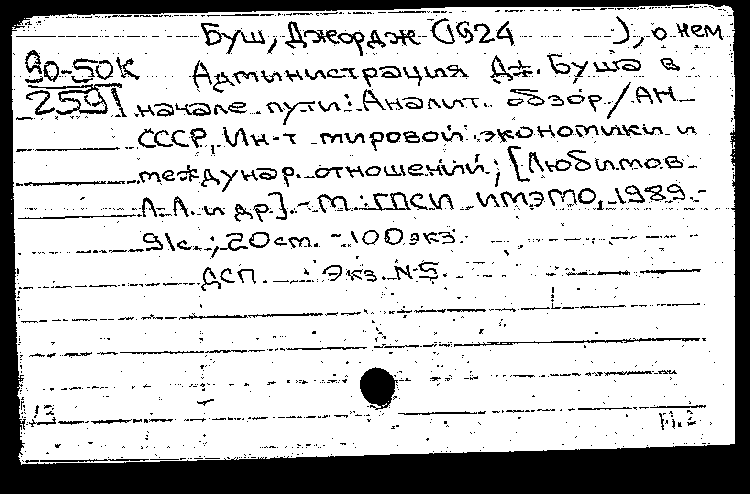 Буш, Джордж (1924 ), о нем
90-50К Администрация Дж. Буша в
2591 начале пути: Аналит. обзор / АН
СССР, Ин-т мировой экономики и
междунар. отношений; [Любимов
Л.Л. и др]. - М.: ГПСИ ИМЭМО, 1989.-
91с.; 20см. - 100экз.
ДСП. Экз. N5.
13